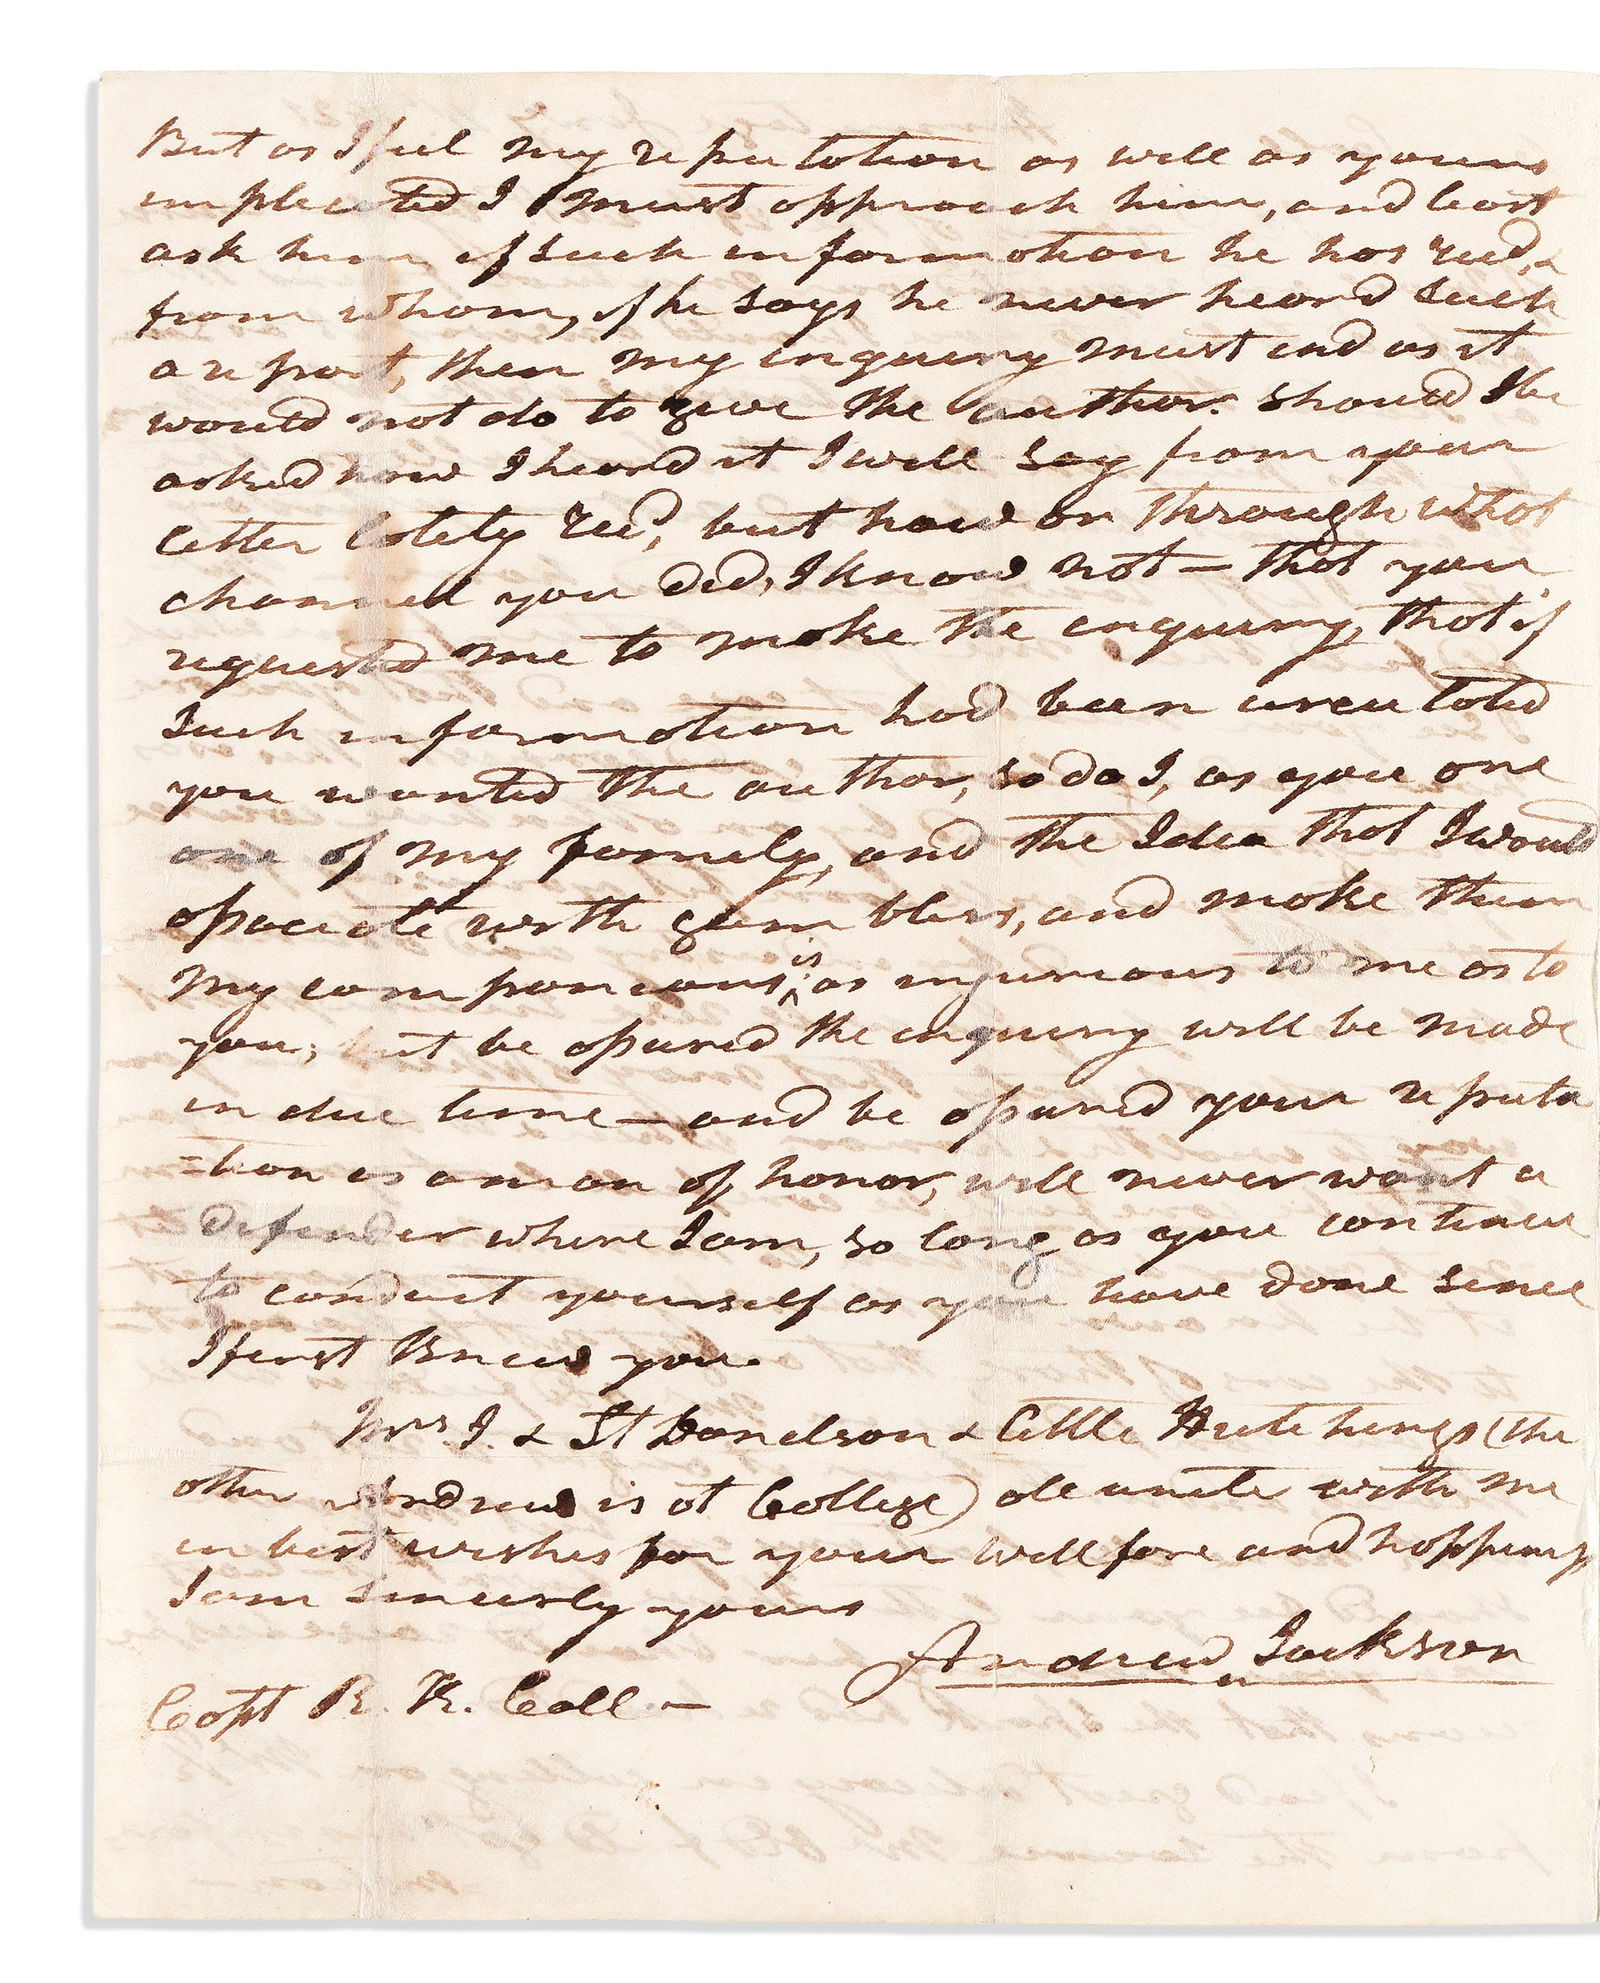 But as I feel my reputation as well as yours
implicated I must approach him, and least
ask him if such information he has recd, &
from whom, if he says he never heard such
a report, then my inquiry must end as it
would not do to give the author. should I be
asked how I heard it I will say from your
letter lately recd, but how or through what
channel you did, I know not — that you
requested me to make the enquiry, that if
such information had been circulated
you wanted the author, so do I, as you are
one of my family, and the Idea that I would
asociate with gamblers, and make them
my companions, is as injurious to me as to
you; but be asured the enquiry will be made
in due time — and be asured your reputa
=tion as a man of honor, will never want a
defender where I am, so long as you continue
to conduct yourself as you have done since
I first Knew you.
Mrs. J. & Donelson & little Hutchings (the
other Andrew is at College) all unite with me
in best wishes for your wellfare and happiness
I am sincerly yours
Andrew Jackson
Capt R. K. Call —